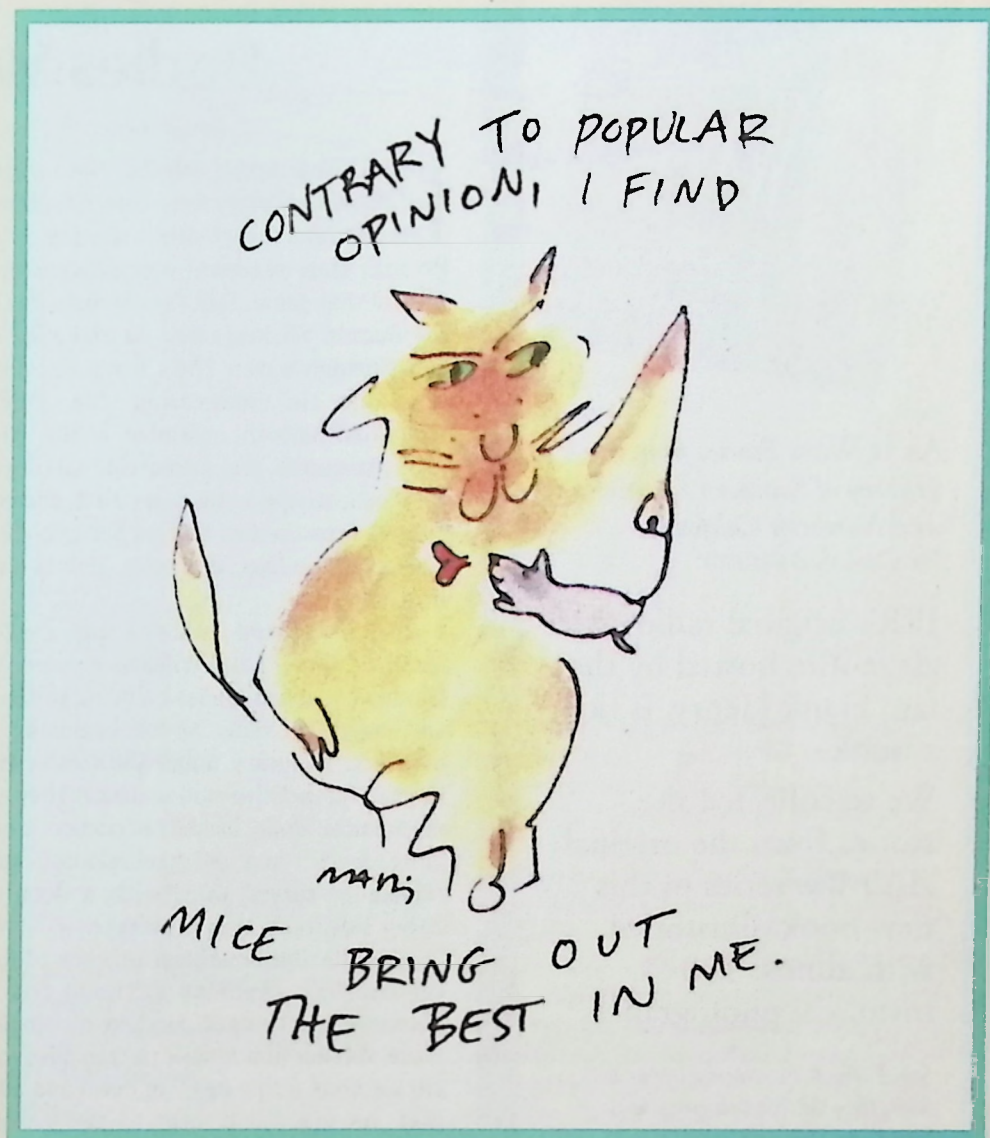 CONTRARY TO POPULAR
OPINION, I FIND
MICE BRING OUT
THE BEST IN ME.